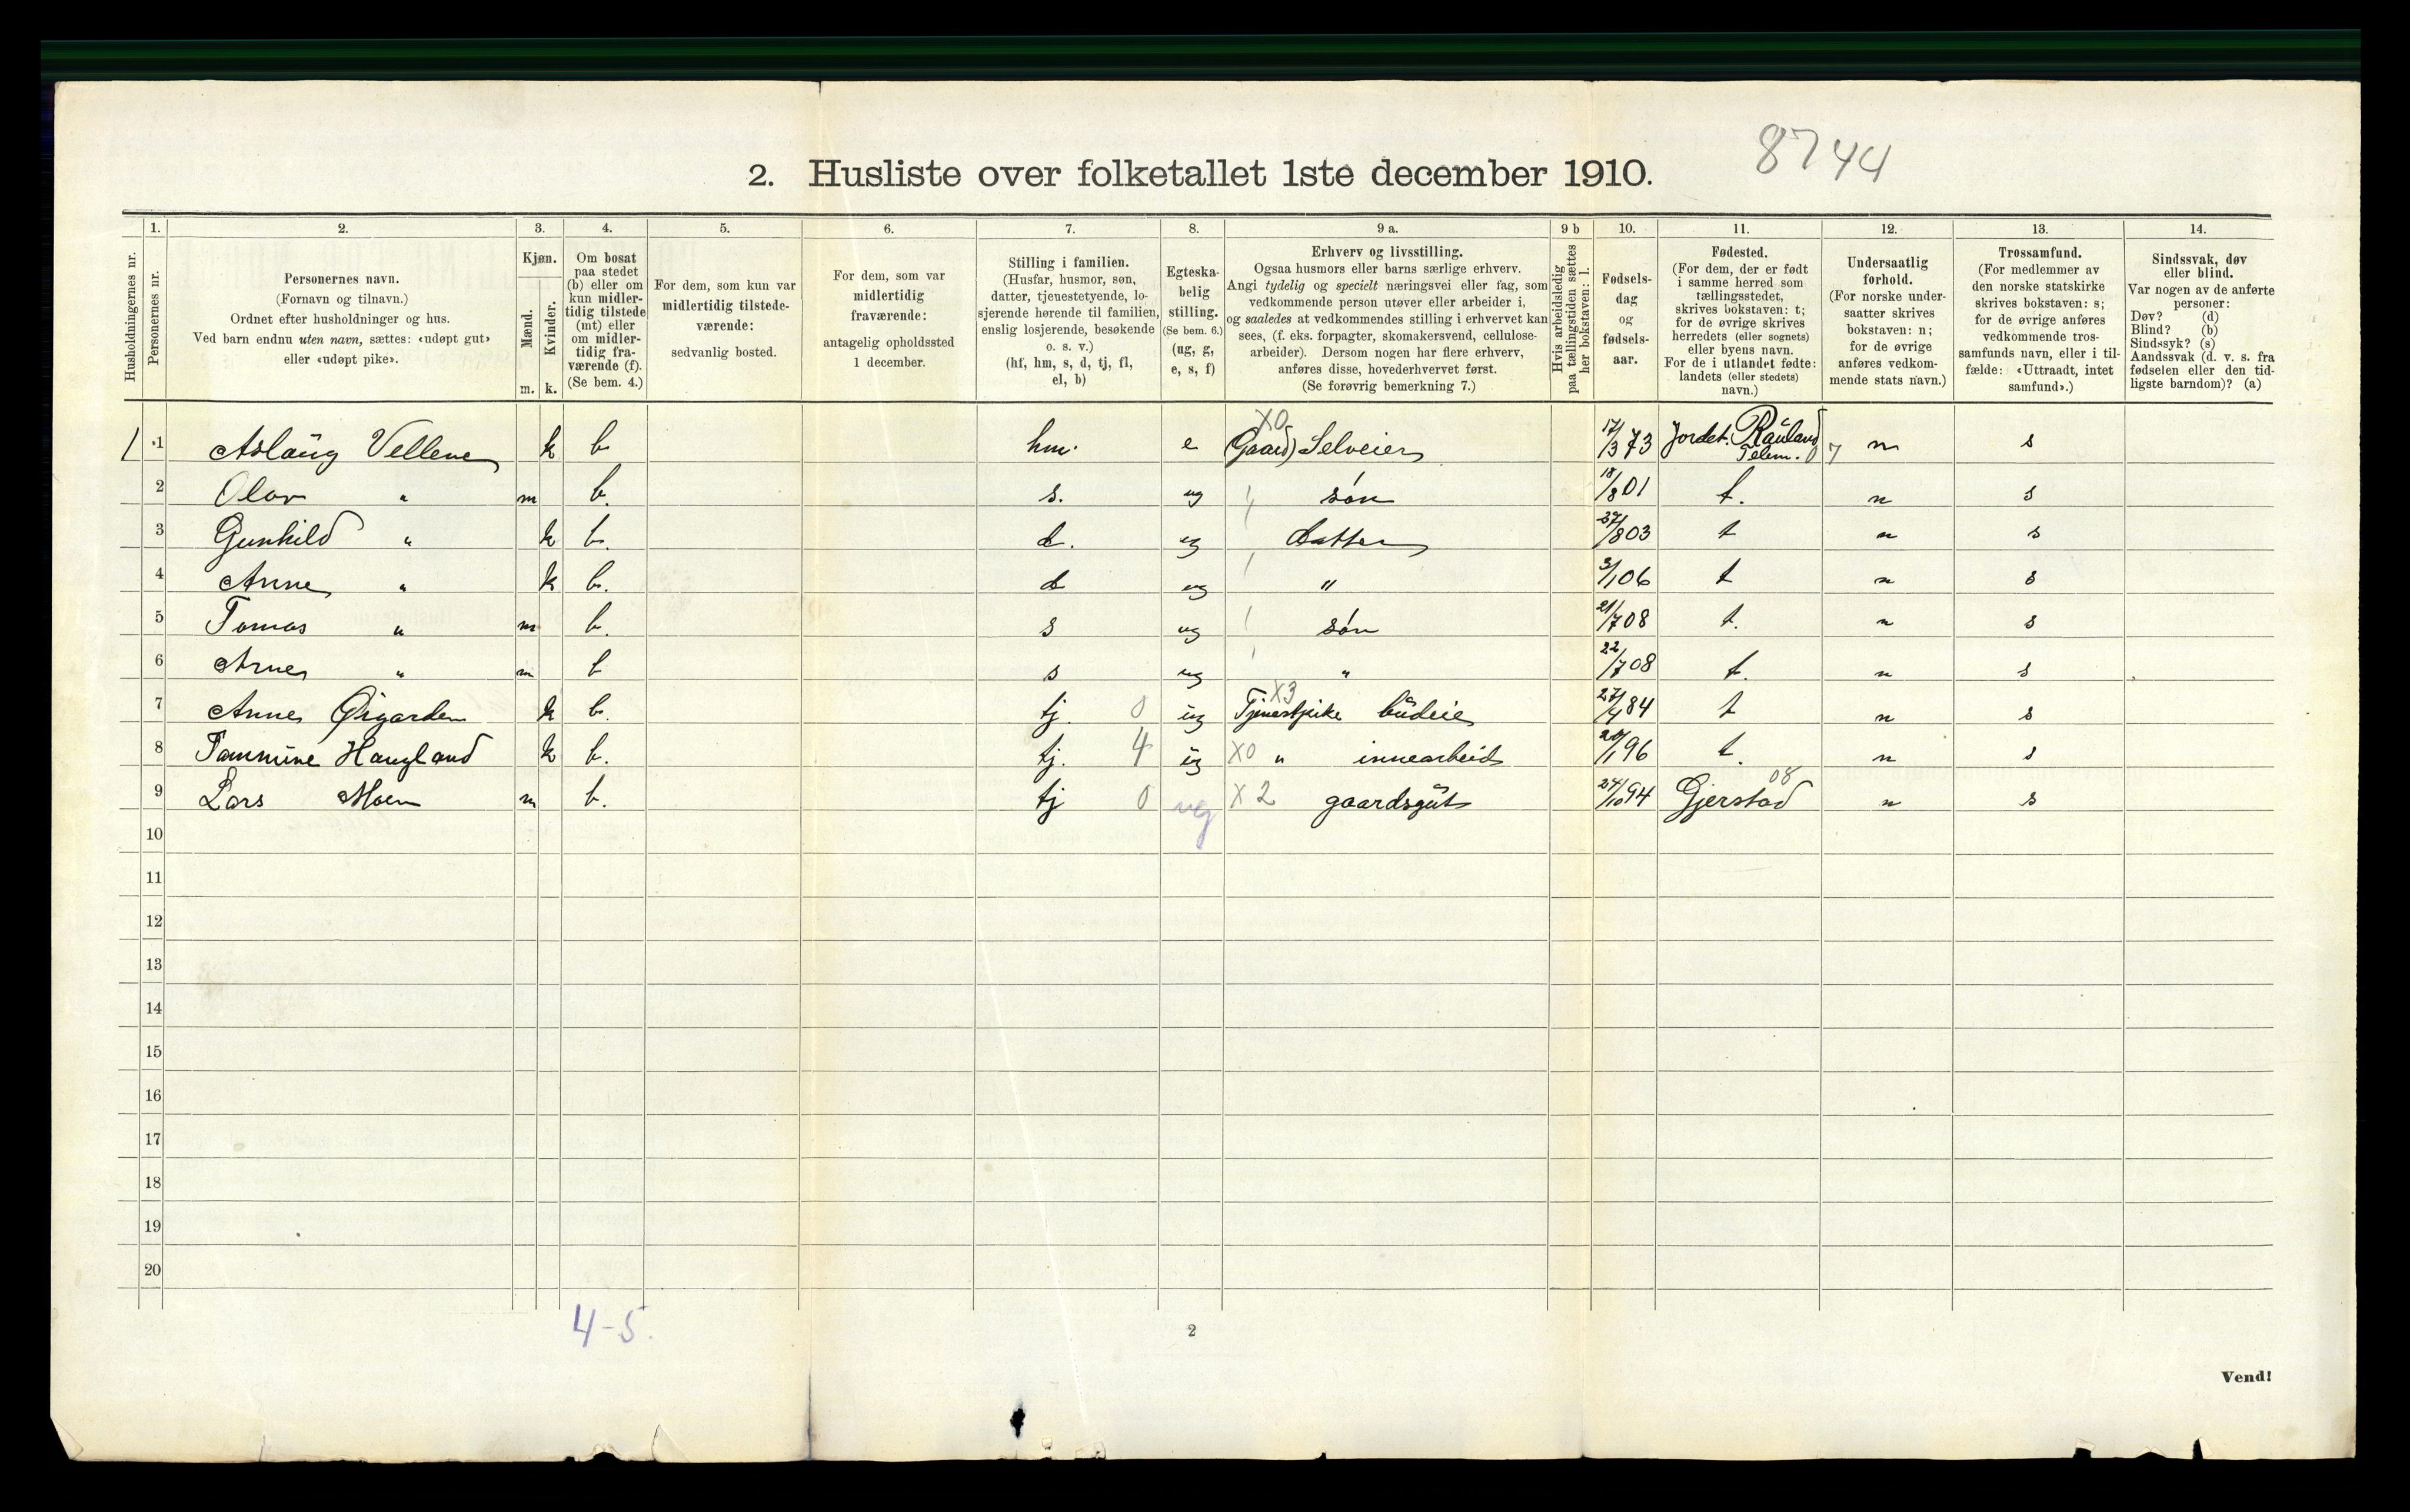 8744
2. Husliste over folketallet 1ste december 1910.
1. 2. 3. 4. 5. 6. 7. 8. 9 a. 9 b 10. 11. 12. 13. 14.
Husholdningernes nr.
Personernes nr.
Personernes navn.
(Fornavn og tilnavn.)
Ordnet efter husholdninger og hus.
Ved barn endnu uten navn, sættes: «udøpt gut»
eller «udøpt pike».
Kjøn.
Mænd.
Kvinder.
m. k.
Om bosat
paa stedet
(b) eller om
kun midler-
tidig tilstede
(mt) eller
om midler-
tidig fra-
værende (f).
(Se bem. 4.)
For dem, som kun var
midlertidig tilstede-
værende:
sedvanlig bosted.
For dem, som var
midlertidig
fraværende:
antagelig opholdssted
1 december.
Stilling i familien.
(Husfar, husmor, søn,
datter, tjenestetyende, lo-
sjerende hørende til familien,
enslig losjerende, besøkende
o. s. v.)
(hf, hm, s, d, tj, fl,
el, b)
Egteska-
belig
stilling.
(Se bem. 6.)
(ug, g,
e, s, f)
Erhverv og livsstilling.
Ogsaa husmors eller barns særlige erhverv.
Angi tydelig og specielt næringsvei eller fag, som
vedkommende person utøver eller arbeider i,
og saaledes at vedkommendes stilling i erhvervet kan
sees, (f. eks. forpagter, skomakersvend, cellulose-
arbeider). Dersom nogen har flere erhverv,
anføres disse, hovederhvervet først.
(Se forøvrig bemerkning 7.)
Hvis arbeidsledig
paa tællingstiden sættes
her bokstaven: l.
Fødsels-
dag
og
fødsels-
aar.
Fødested.
(For dem, der er født
i samme herred som
tællingsstedet,
skrives bokstaven: t;
for de øvrige skrives
herredets (eller sognets)
eller byens navn.
For de i utlandet fødte:
landets (eller stedets)
navn.)
Undersaatlig
forhold.
(For norske under-
saatter skrives
bokstaven: n;
for de øvrige
anføres vedkom-
mende stats navn.)
Trossamfund.
(For medlemmer av
den norske statskirke
skrives bokstaven: s;
for de øvrige anføres
vedkommende tros-
samfunds navn, eller i til-
fælde: «Uttraadt, intet
samfund».)
Sindssvak, døv
eller blind.
Var nogen av de anførte
personer:
Døv? (d)
Blind? (b)
Sindssyk? (s)
Aandssvak (d. v. s. fra
fødselen eller den tid-
ligste barndom)? (a)
1 1 Aslaug Vellene k b hm. e X0 (Gaard) Selveier 17/3 73 Rauland Telem. 07 n s
2 Olav " m b. s. ug søn 18/8 01 t. n s
3 Gunhild " k b. d. ug datter 27/8 03 t n s
4 Anne " k b. d ug " 3/1 06 t n s
5 Tomas " m b. s ug søn 21/7 08 t. n s
6 Arne " m b s ug " 22/7 08 t. n s
7 Anne Øigarden k b. tj. 0 ug X3 Tjenestpike budeie 27/4 84 t n s
8 Tommine Haugland k b. tj. 4 ug X0 " innearbeid 20/1 96 t. n s
9 Lars Moen m b. tj 0 ug X2 gaardsgut 24/10 94 Gjerstad 08 n s
10
11
12
13
14
15
16
17
18
19
20
4-5.
2
Vend!